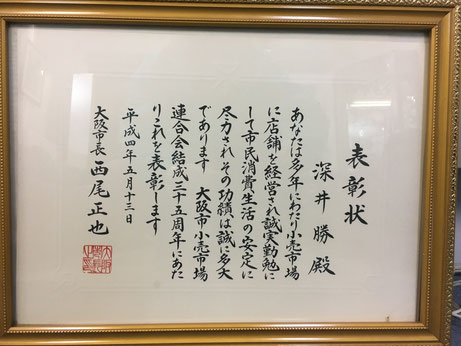 表彰状
深井勝殿
あなたは多年にわたり小売市場
に店舗を経営され誠実勤勉に
して市民消費生活の安定に
尽力されその功績は誠に多大
であります　大阪市小売市場
連合会結成三十五周年にあた
りこれを表彰します
平成四年五月十三日
大阪市長 西尾正也